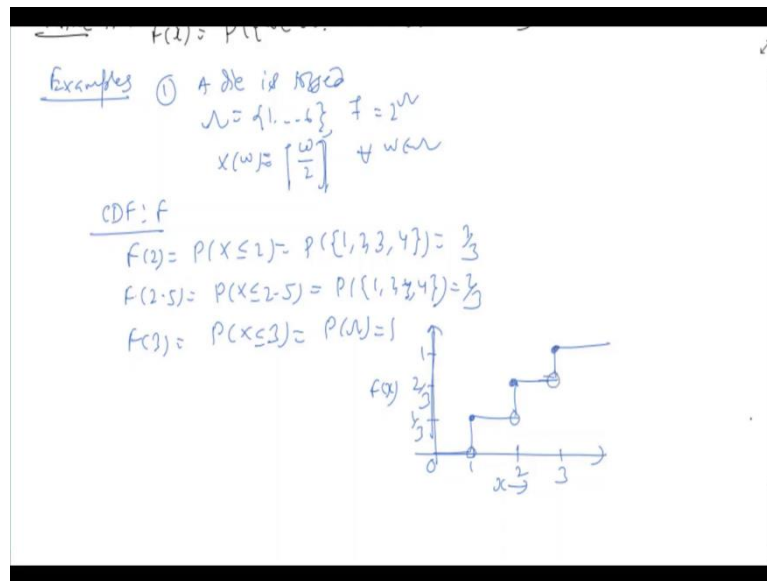 F(x) = P({
Examples ① A die is tossed
Ω = {1...6}, F = 2^Ω
X(ω) = ⌈ω/2⌉ ∀ ω∈Ω
CDF: F
F(2) = P(X≤2) = P({1,2,3,4}) = 2/3
F(2.5) = P(X≤2.5) = P({1,2,3,4}) = 2/3
F(3) = P(X≤3) = P(Ω) = 1
1
F(x) 2/3
1/3
0 1 2 3
x→